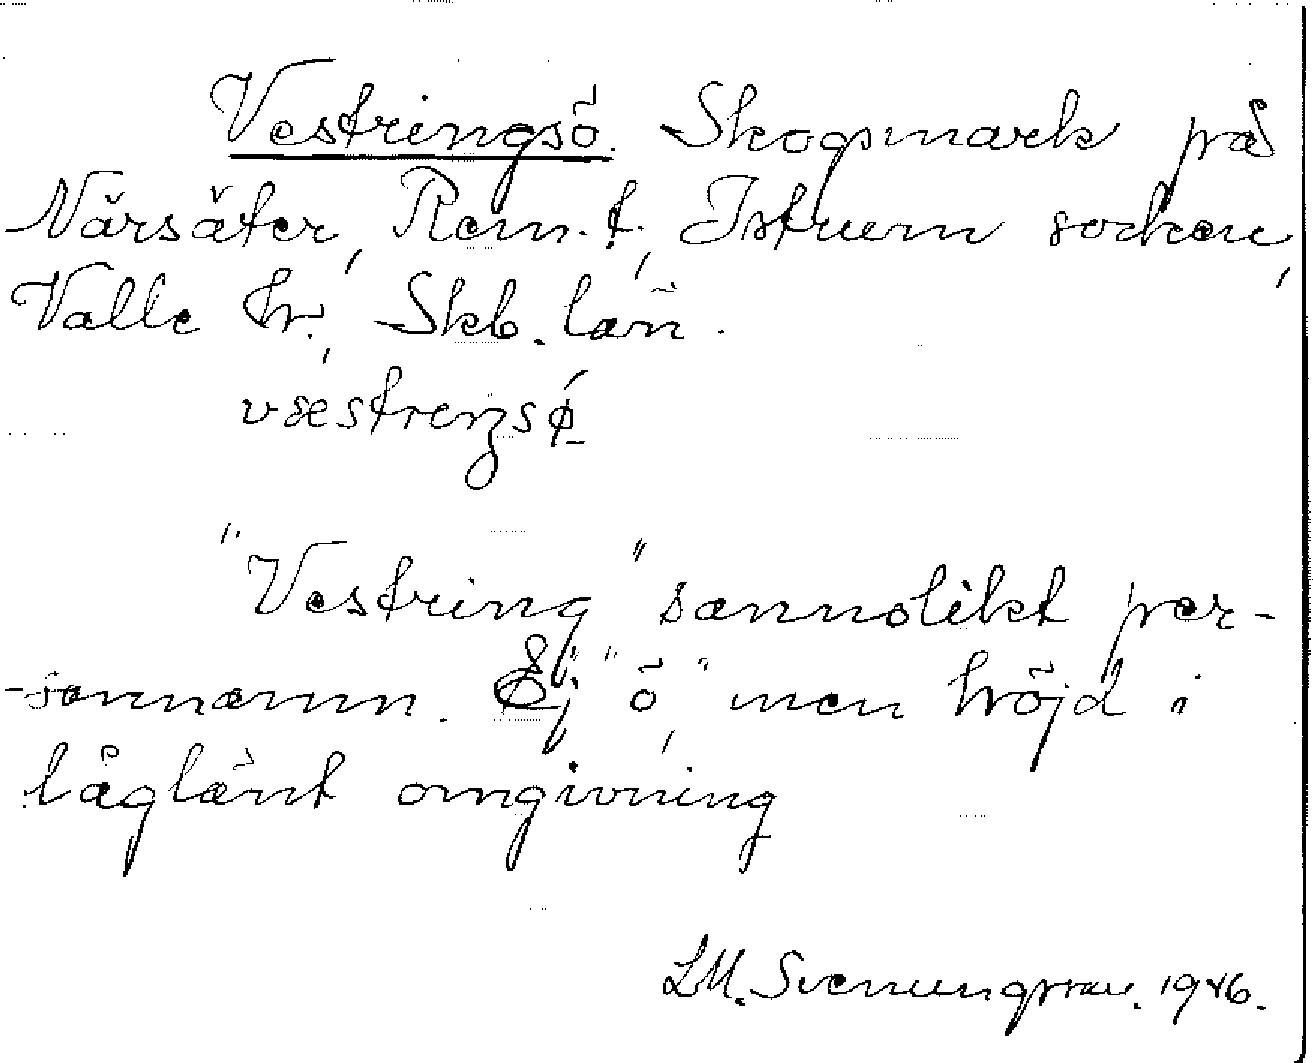 Vestringsö. Skogsmark på
Närsäter, Rem.t., Istrum socken,
Valle hr., Skb. län.
væstreŋsǿ
"Vestring" sannolikt per-
-sonnamn. Ej "ö", men höjd i
låglänt omgivning
LM. Svenungsson. 1946.